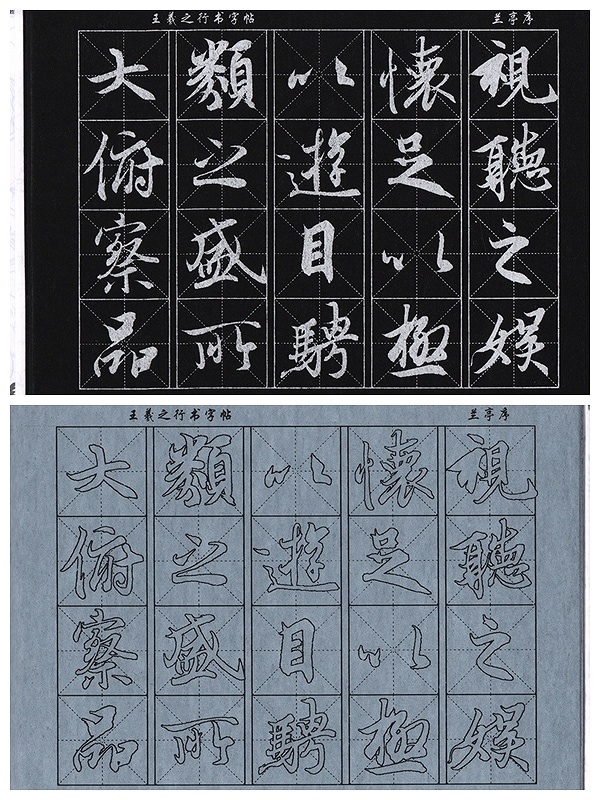 王羲之行书字帖
兰亭序
大俯察品
類之盛所
以遊目騁
懷足以極
視聽之娱
王羲之行书字帖
兰亭序
大俯察品
類之盛所
以遊目騁
懷足以極
視聽之娱